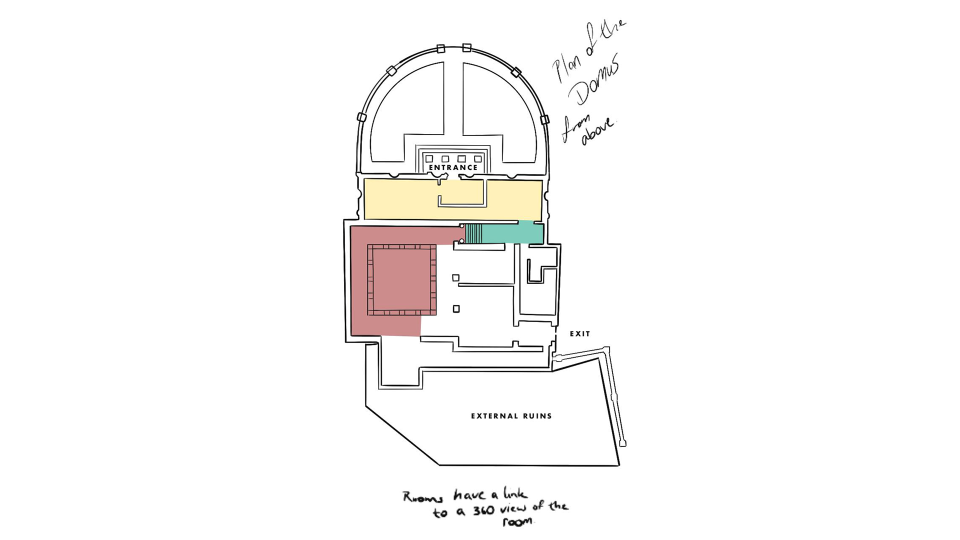 Plan of the
Domus
from
above.
ENTRANCE
EXIT
EXTERNAL RUINS
Rooms have a link
to a 360 view of the
room